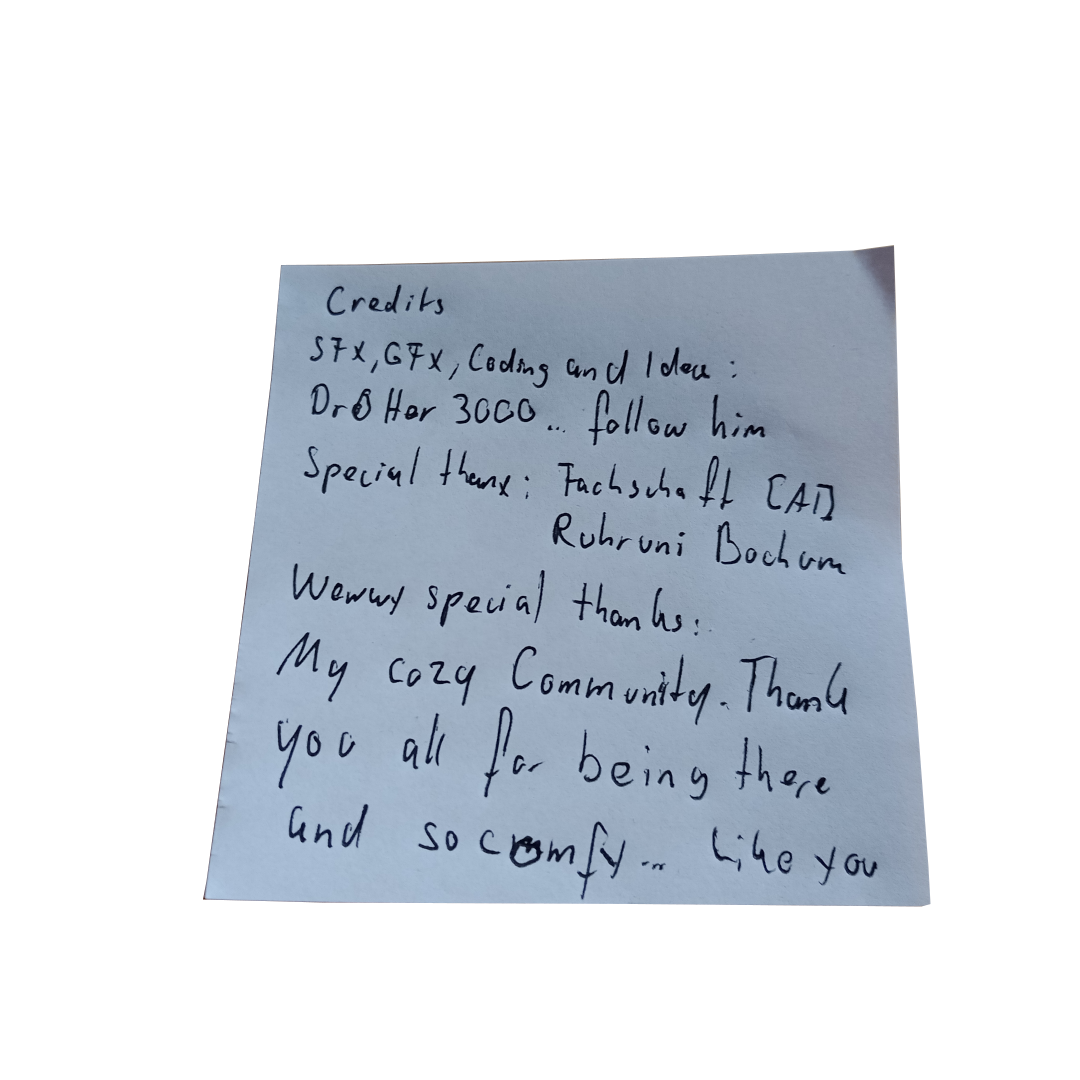 Credits
SFX, GFX, Coding and Idea:
DrÖHer 3000... follow him
Special thanx: Fachschaft [AI]
Ruhruni Bochum
Wewwy special thanks:
My cozy Community. Thank
you all for being there
and so comfy... Like you